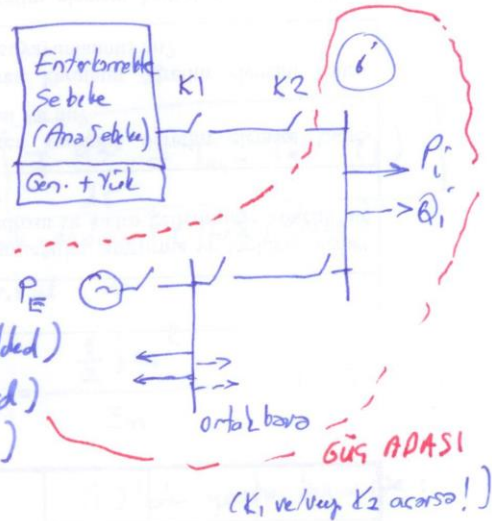 Enterkonnekte
Şebeke
(Ana Şebeke)
Gen. + Yük
K1
K2
i
Pi
Qi
PE
ded)
d)
)
ortak bara
GÜÇ ADASI
(K1 ve/veya K2 açarsa!)